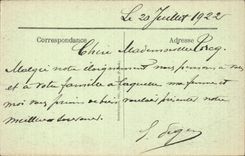 Le 20 Juillet 1922
Correspondance
Adresse
Chère Mademoiselle
Malgré notre éloignement nous pensons à vous
et à votre famille à laquelle ma femme et
moi vous prions de bien vouloir présenter notre
meilleur souvenir.